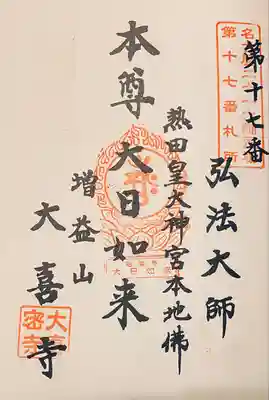 第十七番
弘法大師
熱田皇大神宮本地佛
本尊 大日如来
増益山
大喜寺
第十七番札所
大日如来